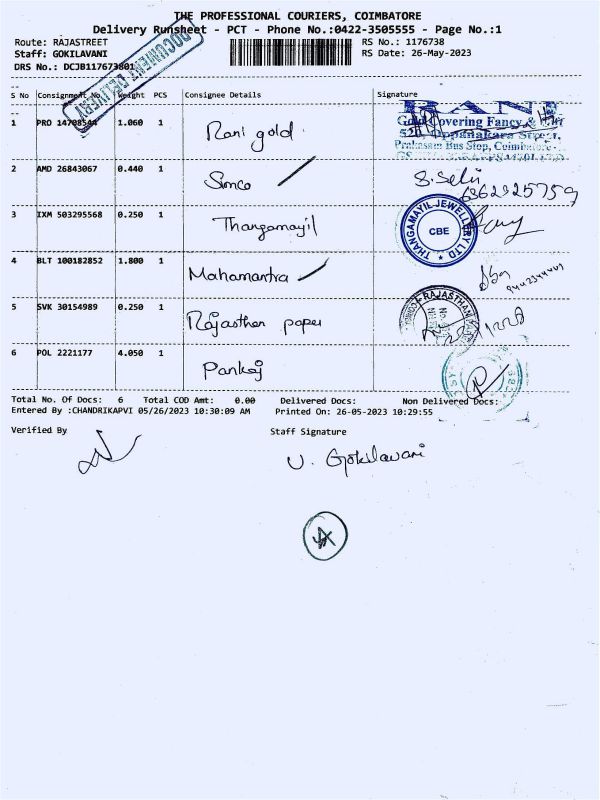 THE PROFESSIONAL COURIERS, COIMBATORE
Delivery Runsheet - PCT - Phone No.:0422-3505555 - Page No.:1
Route: RAJASTREET RS No.: 1176738
Staff: GOKILAVANI RS Date: 26-May-2023
DRS No.: DCJB117673801
DOCUMENT DELIVERY
S No Consignment No. Weight PCS Consignee Details Signature
1 PRO 14708544 1.060 1 Rani gold
RANI
Gold Covering Fancy &
Prakasam Bus Stop, Coimbatore
2 AMD 26843067 0.440 1 Simco S. Selvi
3 IXM 503295568 0.250 1 Thangamayil THANGAMAYIL JEWELLERY LTD CBE
4 BLT 100182852 1.800 1 Mahamantra
5 SVK 30154989 0.250 1 Rajasthan paper RAJASTHAN
6 POL 2221177 4.050 1 Pankaj
Total No. Of Docs: 6 Total COD Amt: 0.00 Delivered Docs: Non Delivered Docs:
Entered By :CHANDRIKAPVI 05/26/2023 10:30:09 AM Printed On: 26-05-2023 10:29:55
Verified By Staff Signature
U. Gokilavani